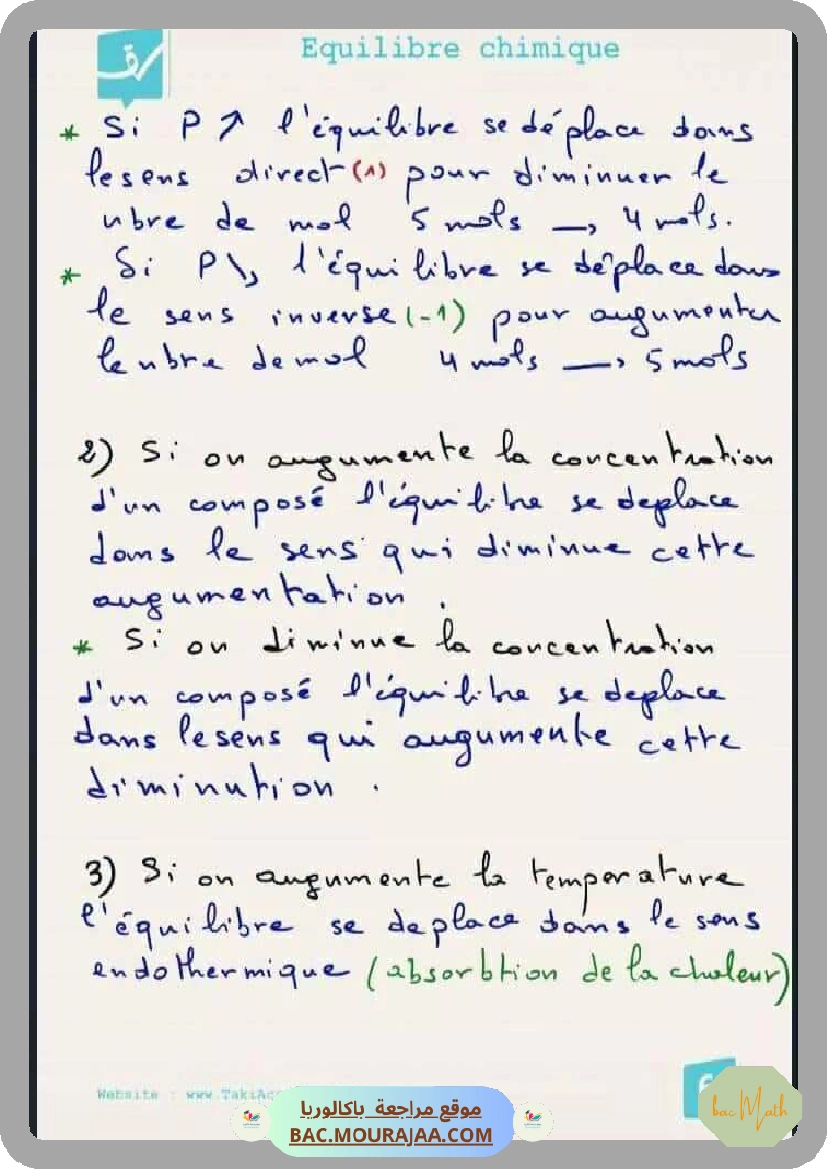 Equilibre chimique
* Si P ↗ l'équilibre se déplace dans
le sens direct (1) pour diminuer le
nbre de mol 5 mols → 4 mols.
* Si P ↘, l'équilibre se déplace dans
le sens inverse (-1) pour augumenter
le nbre de mol 4 mols → 5 mols
2) Si on augumente la concentration
d'un composé l'équilibre se deplace
dans le sens qui diminue cette
augumentation.
* Si on diminue la concentration
d'un composé l'équilibre se deplace
dans le sens qui augumente cette
diminution.
3) Si on augumente la temperature
l'équilibre se deplace dans le sens
endothermique (absorbtion de la chaleur)
Website : www.
موقع مراجعة باكالوريا
BAC.MOURAJAA.COM
bac Math